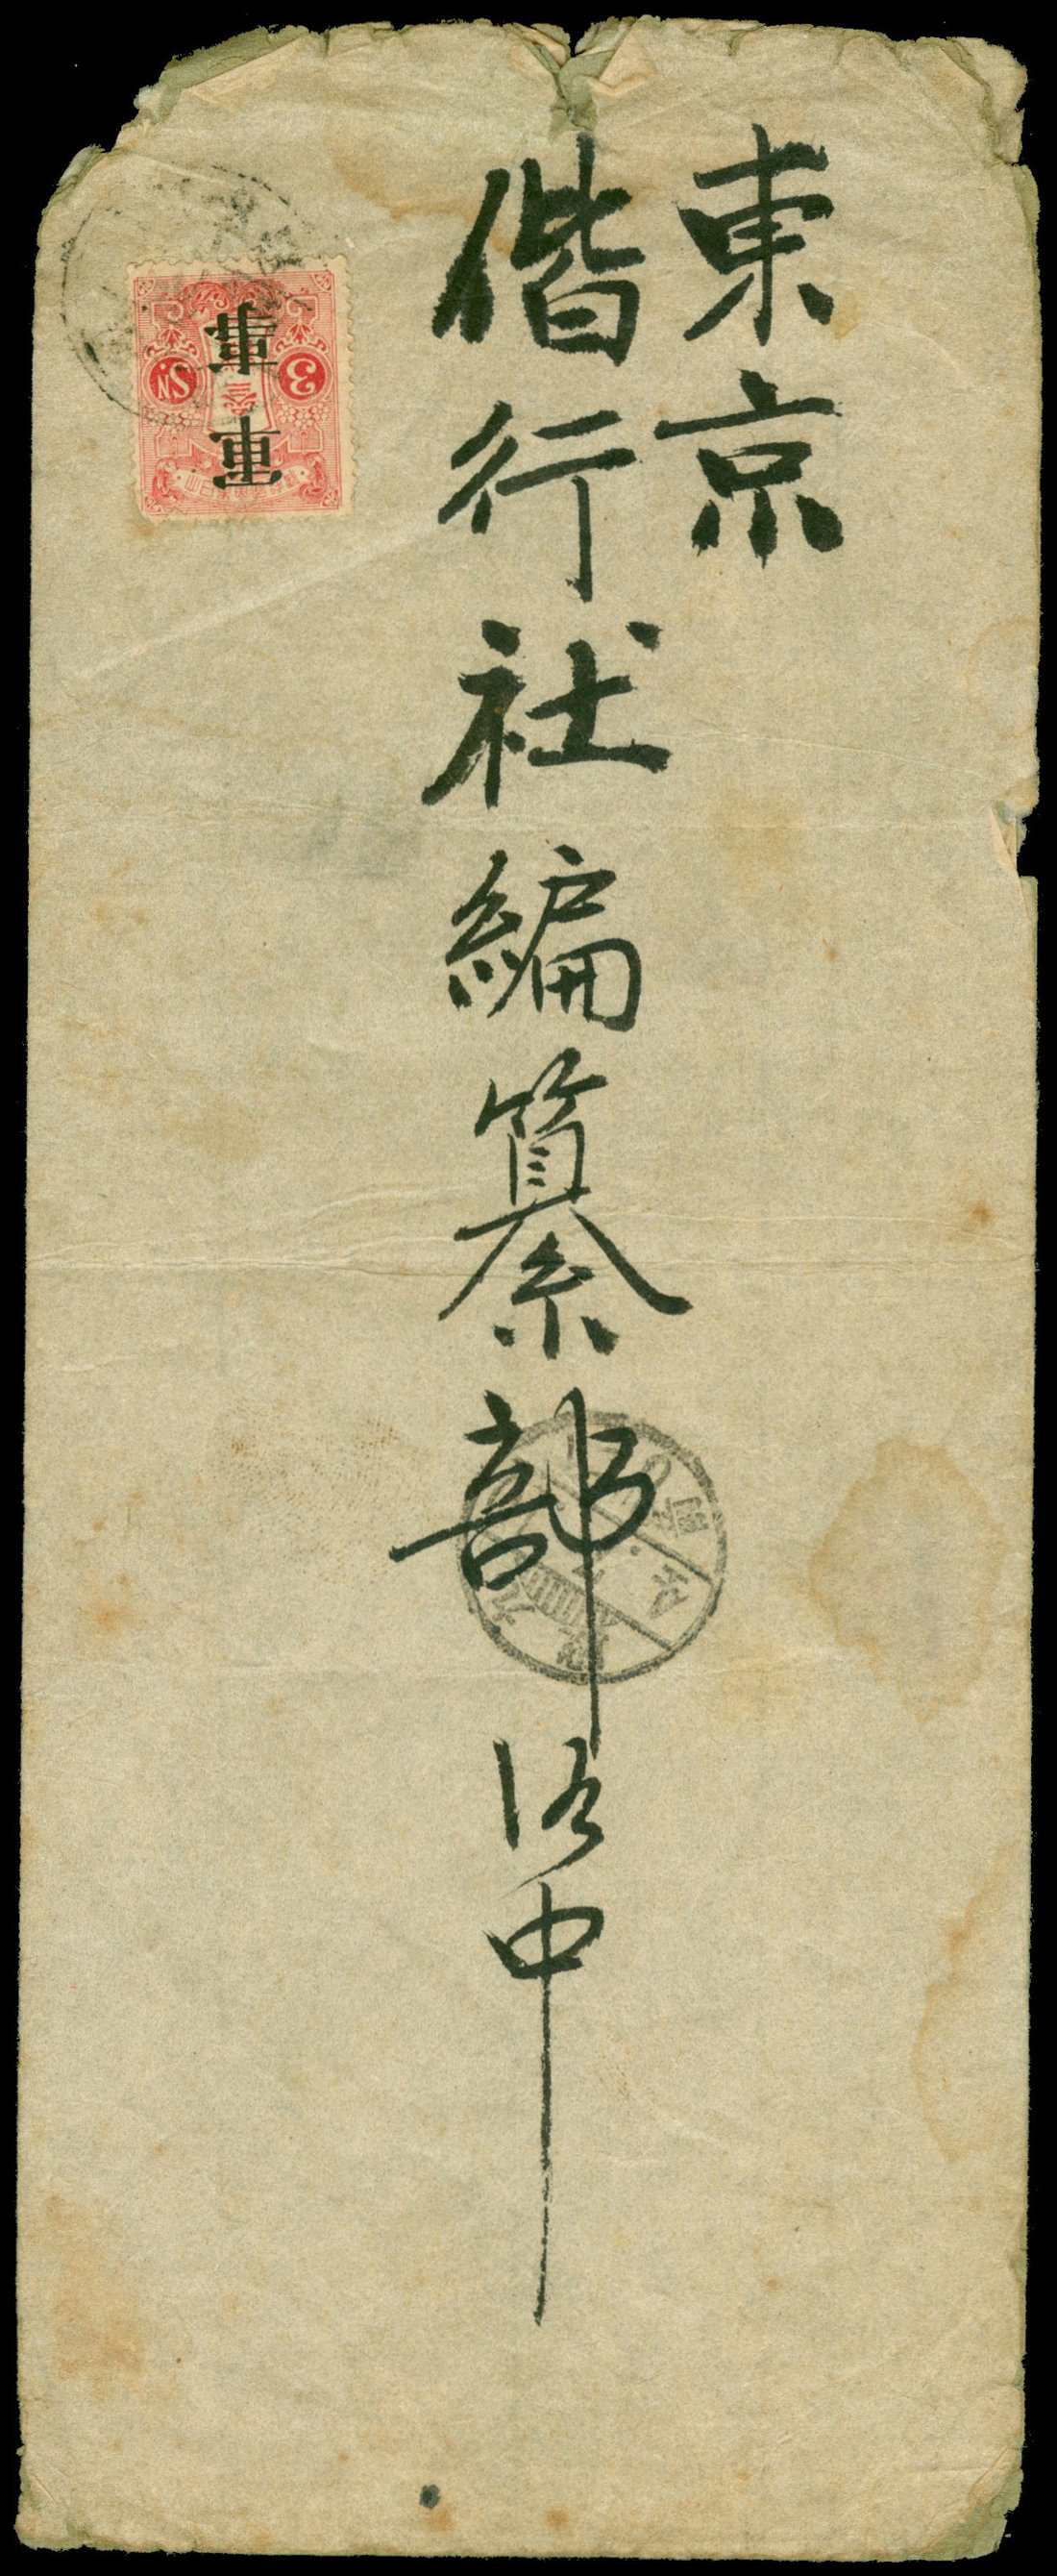 東京
偕行社編纂部御中
軍事
3 Sn.